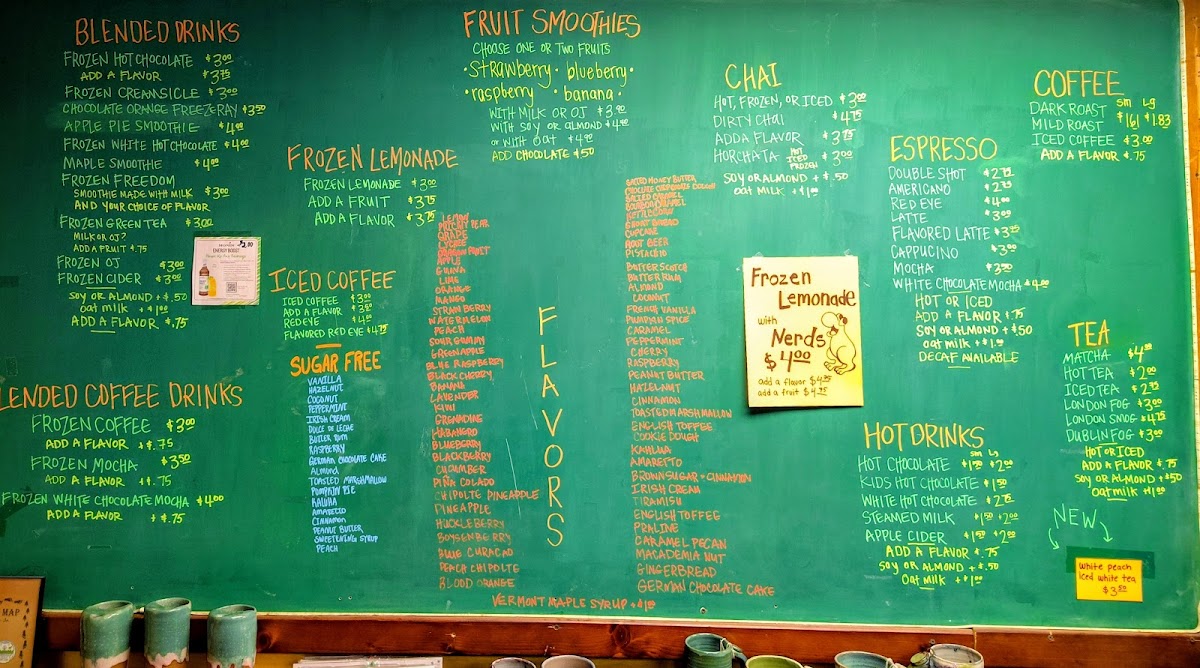 BLENDED DRINKS
FROZEN HOT CHOCOLATE $3.00
ADD A FLAVOR $3.75
FROZEN CREAMSICLE $3.00
CHOCOLATE ORANGE FREEZERAY $3.50
APPLE PIE SMOOTHIE $4.00
FROZEN WHITE HOT CHOCOLATE $4.00
MAPLE SMOOTHIE $4.00
FROZEN FREEDOM
SMOOTHIE MADE WITH MILK $3.00
AND YOUR CHOICE OF FLAVOR
FROZEN GREEN TEA $3.00
MILK OR OJ?
ADD A FRUIT $.75
FROZEN OJ $3.00
FROZEN CIDER $3.00
SOY OR ALMOND +$.50
oat milk +$1.00
ADD A FLAVOR $.75
LENDED COFFEE DRINKS
FROZEN COFFEE $3.00
ADD A FLAVOR +$.75
FROZEN MOCHA $3.50
ADD A FLAVOR +$.75
FROZEN WHITE CHOCOLATE MOCHA $4.00
ADD A FLAVOR +$.75
ENERGY BOOST
FROZEN LEMONADE
FROZEN LEMONADE $3.00
ADD A FRUIT $3.75
ADD A FLAVOR $3.75
ICED COFFEE
ICED COFFEE $3.00
ADD A FLAVOR
RED EYE
FLAVORED RED EYE $4.75
SUGAR FREE
VANILLA
HAZELNUT
COCONUT
PEPPERMINT
IRISH CREAM
DULCE DE LECHE
BUTTER RUM
RASPBERRY
GERMAN CHOCOLATE CAKE
ALMOND
TOASTED MARSHMALLOW
PUMPKIN PIE
KALUHA
AMARETTO
CINNAMON
PEANUT BUTTER
SWEETENING SYRUP
PEACH
FRUIT SMOOTHIES
CHOOSE ONE OR TWO FRUITS
• Strawberry • blueberry •
• raspberry • banana •
WITH MILK OR OJ
WITH SOY OR ALMOND
or WITH OAT
ADD CHOCOLATE $.50
FLAVORS
LEMON
PRICKLY PEAR
GRAPE
LYCHEE
DRAGON FRUIT
APPLE
GUAVA
LIME
ORANGE
MANGO
STRAWBERRY
WATERMELON
PEACH
SOUR GUMMY
GREEN APPLE
BLUE RASPBERRY
BLACK CHERRY
BANANA
LAVENDER
KIWI
GRENADINE
HABANERO
BLUEBERRY
BLACKBERRY
CUCUMBER
PIÑA COLADO
CHIPOLTE PINEAPPLE
PINEAPPLE
HUCKLEBERRY
BOYSENBERRY
BLUE CURACAO
PEACH CHIPOLTE
BLOOD ORANGE
SALTED HONEY BUTTER
CHOCOLATE CHIP COOKIE DOUGH
SALTED CARAMEL
BOURBON CARAMEL
KETTLE CORN
CUPCAKE
ROOT BEER
PISTACHIO
BUTTERSCOTCH
BUTTER RUM
ALMOND
COCONUT
FRENCH VANILLA
PUMPKIN SPICE
CARAMEL
PEPPERMINT
CHERRY
RASPBERRY
PEANUT BUTTER
HAZELNUT
CINNAMON
TOASTED MARSHMALLOW
ENGLISH TOFFEE
COOKIE DOUGH
KAHLUA
AMARETTO
BROWN SUGAR + CINNAMON
IRISH CREAM
TIRAMISU
ENGLISH TOFFEE
PRALINE
CARAMEL PECAN
MACADEMIA NUT
GINGERBREAD
GERMAN CHOCOLATE CAKE
VERMONT MAPLE SYRUP +$1.00
CHAI
HOT, FROZEN, OR ICED $3.00
DIRTY CHAI $4.75
ADD A FLAVOR $3.75
HORCHATA HOT ICED FROZEN $3.00
SOY OR ALMOND +$.50
oat MILK +$1.00
Frozen
Lemonade
with
Nerds
$4.00
add a flavor $4.75
add a fruit $4.75
ESPRESSO
DOUBLE SHOT
AMERICANO
RED EYE
LATTE $3.00
FLAVORED LATTE
CAPPUCINO $3.00
MOCHA
WHITE CHOCOLATE MOCHA $4.00
HOT OR ICED
ADD A FLAVOR $.75
SOY OR ALMOND +$.50
oat milk +$1.00
DECAF AVAILABLE
HOT DRINKS
sm Lg
HOT CHOCOLATE $1.50 $2.00
KIDS HOT CHOCOLATE $1.50
WHITE HOT CHOCOLATE
STEAMED MILK $1.50 $2.00
APPLE CIDER $1.50 $2.00
ADD A FLAVOR $.75
SOY OR ALMOND +$.50
oat MILK +$1.00
COFFEE
sm Lg
DARK ROAST
MILD ROAST $1.61 $1.83
ICED COFFEE $3.00
ADD A FLAVOR $.75
TEA
MATCHA
HOT TEA $2.00
ICED TEA
LONDON FOG $3.00
LONDON SMOG $4.75
DUBLIN FOG $3.00
HOT OR ICED
ADD A FLAVOR $.75
SOY OR ALMOND +$.50
oat milk +$1.00
NEW
white peach
iced white tea
$3.50
MAP